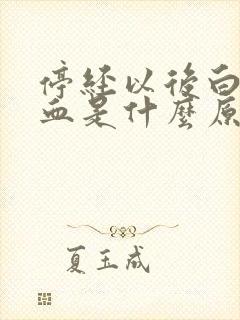 停经以後白
血是什麼原
夏玉成